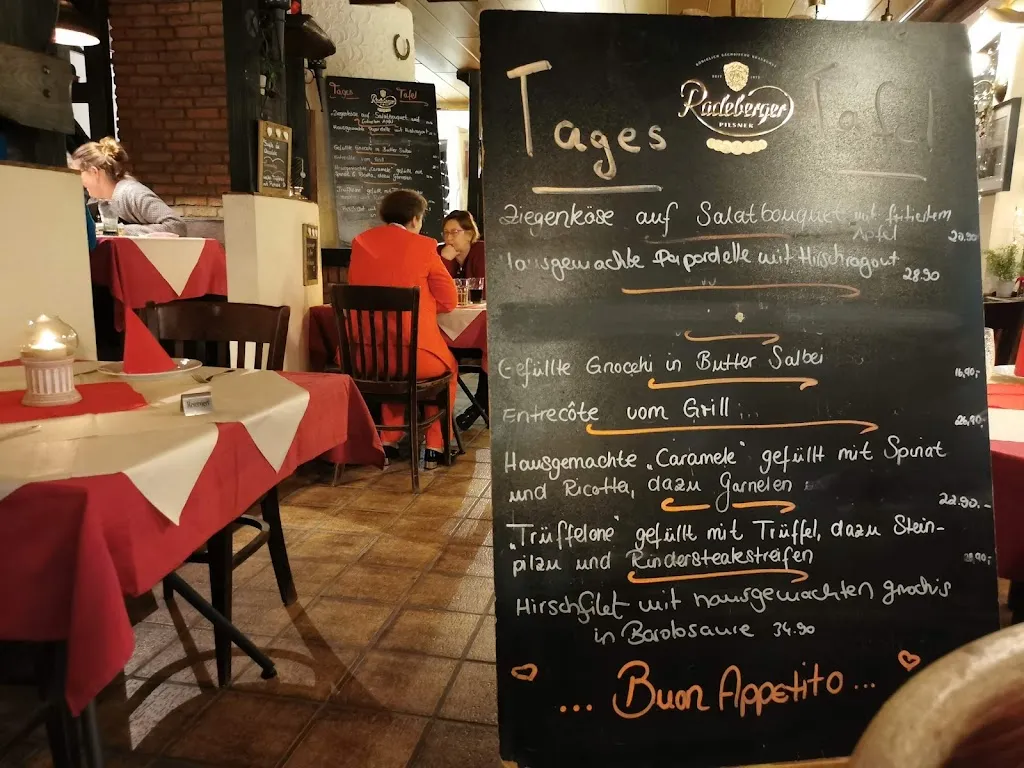 Tages Tafel
Radeberger
PILSNER
Ziegenköse auf Salatbouquet mit frittiertem
Apfel 20.90
Hausgemachte Papardelle mit Hirschragout
28.90
Gefüllte Gnocchi in Butter Salbei 16,90,-
Entrecôte vom Grill 26,90,-
Hausgemachte „Caramele" gefüllt mit Spinat
und Ricotta, dazu Garnelen
22.90.-
„Trüffelone" gefüllt mit Trüffel, dazu Stein-
pilzu und Rindersteakstreifen
Hirschfilet mit hausgemachten gnochis
in Barolosauce 34.90
... Buon Appetito ...
Tages Tafel
Radeberger